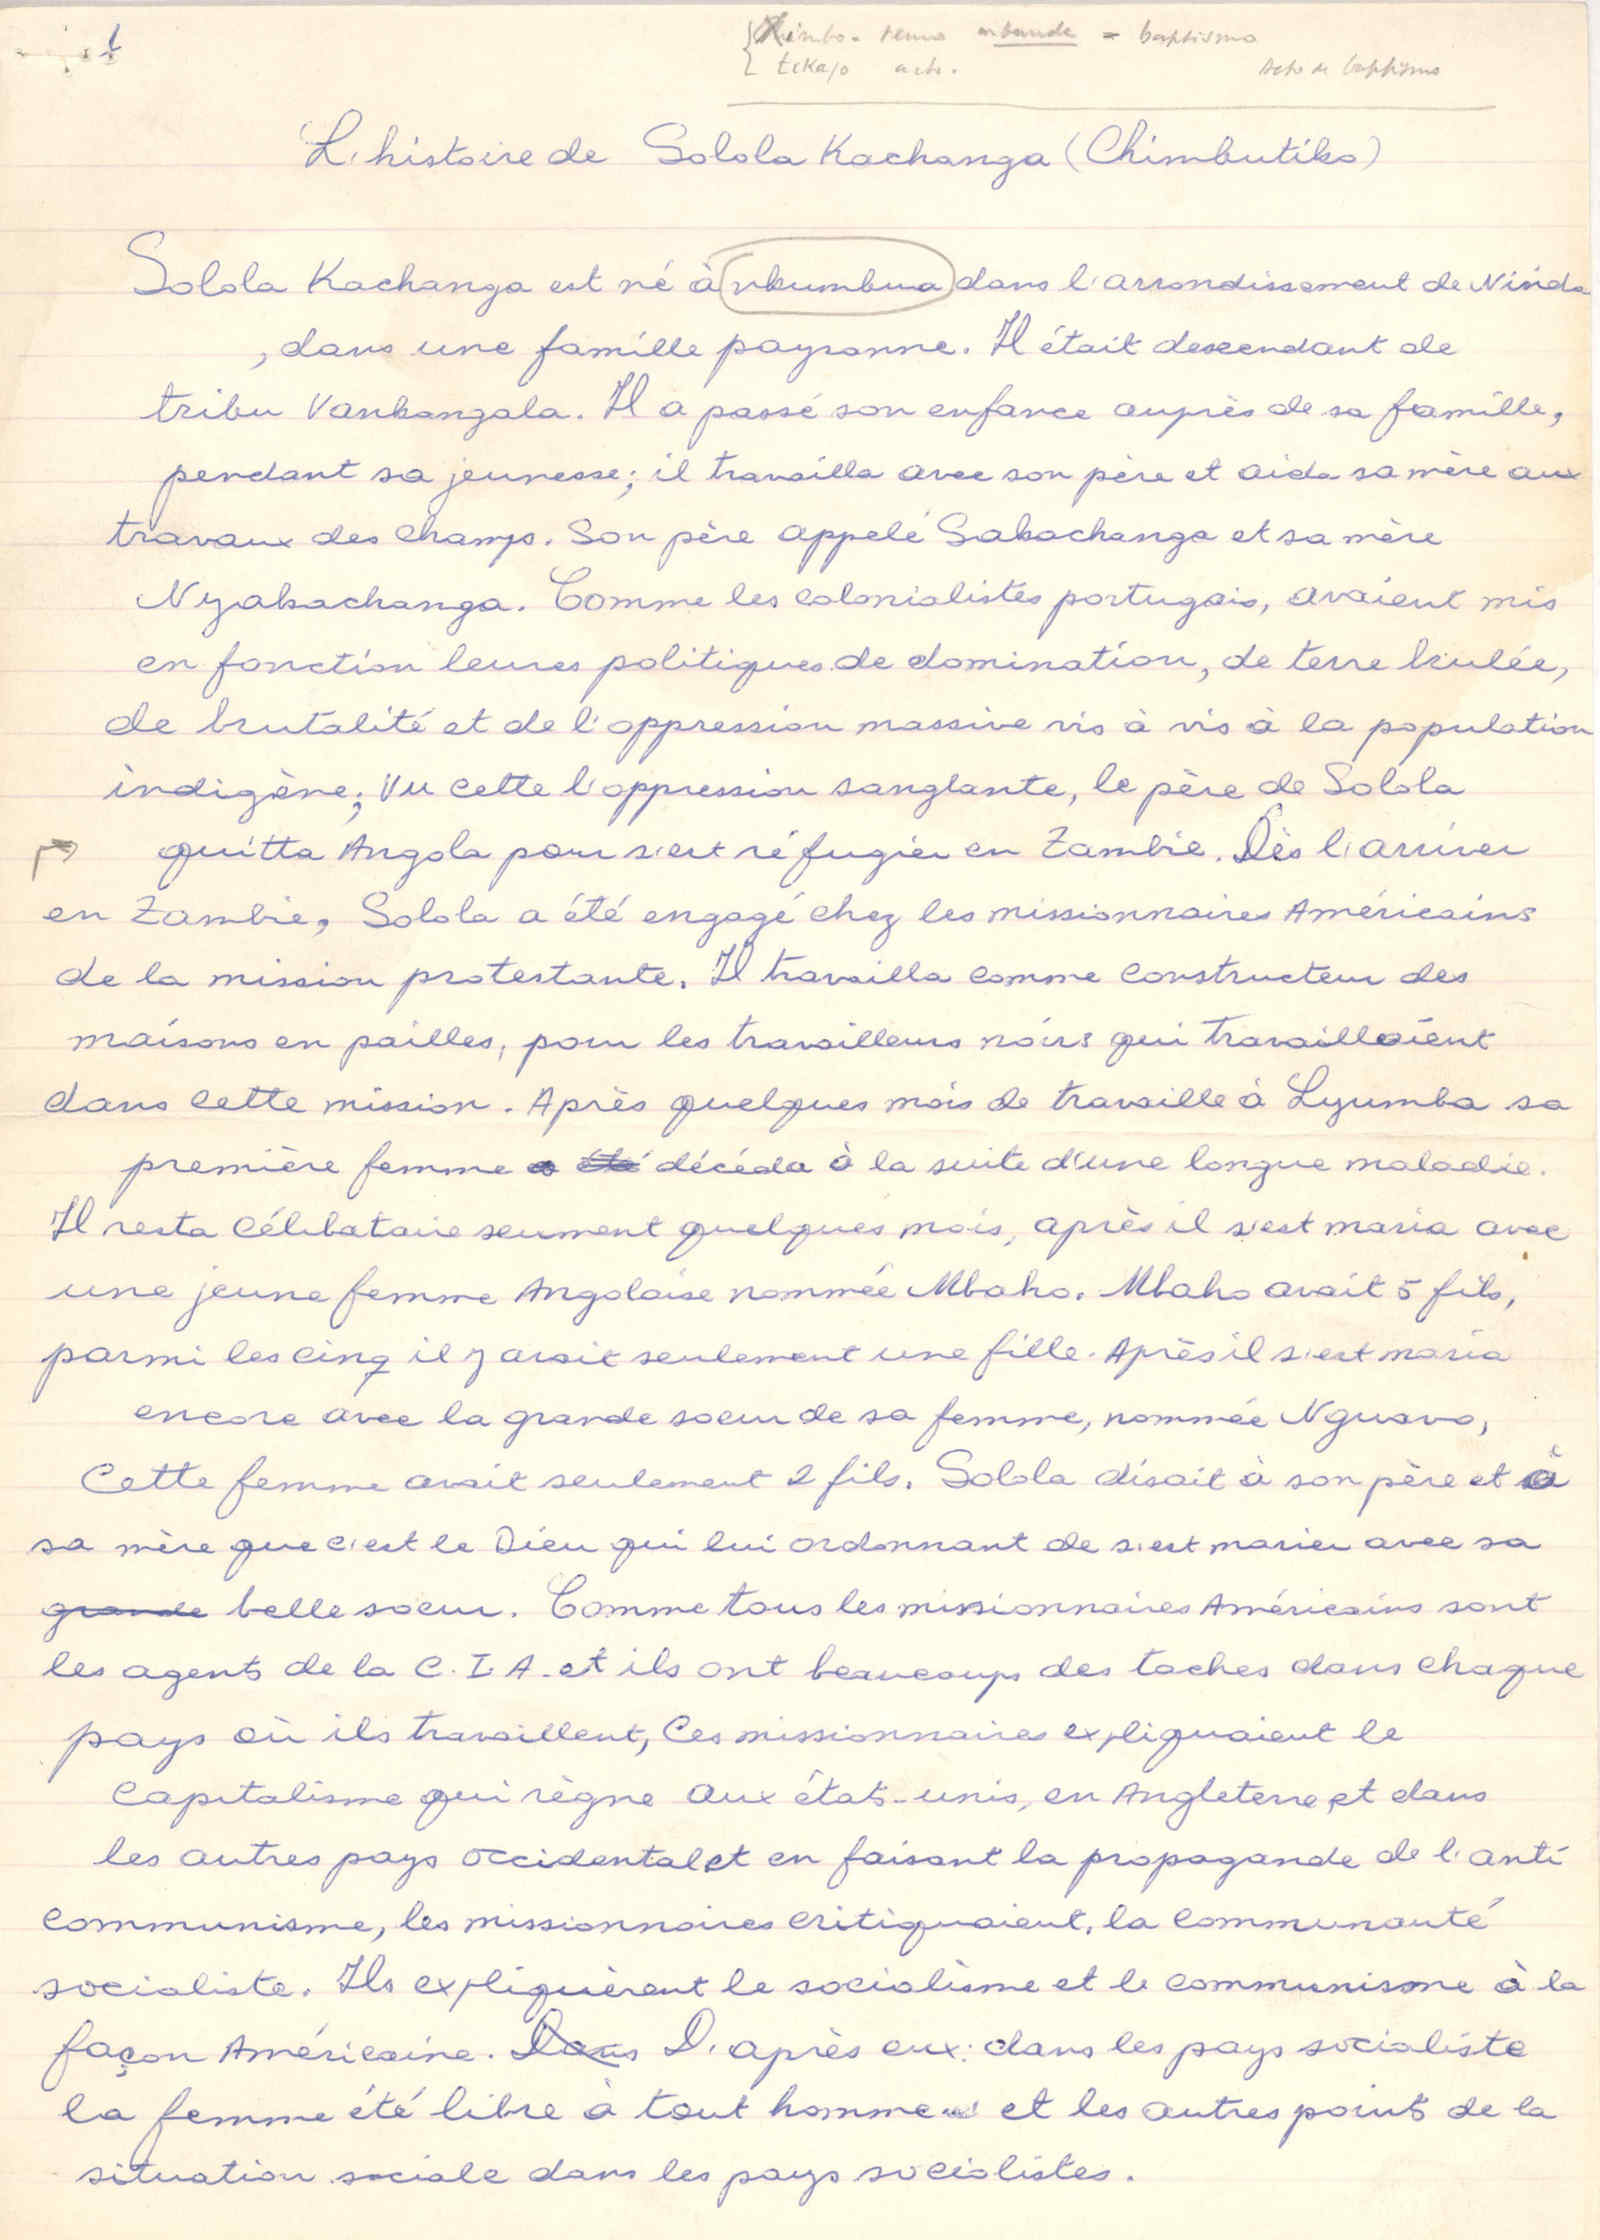 1
= baptismo
tekajo acto. Acto de baptismo
L'histoire de Solola Kachanga (Chimbutiko)
Solola Kachanga est né à nkumbua dans l'arrondissement de Ninda
, dans une famille paysanne. Il était descendant de
tribu Vankangala. Il a passé son enfance auprès de sa famille,
pendant sa jeunesse; il travailla avec son père et aida sa mère aux
travaux des champs. Son père appelé Sakachanga et sa mère
Nyakachanga. Comme les colonialistes portugais, avaient mis
en fonction leures politiques de domination, de terre brulée,
de brutalité et de l'oppression massive vis à vis à la population
indigène; Vu cette l'oppression sanglante, le père de Solola
quitta Angola pour s'est réfugier en Zambie. Dès l'arriver
en Zambie, Solola a été engagé chez les missionnaires Américains
de la mission protestante. Il travailla comme constructeur des
maisons en pailles, pour les travailleurs noirs qui travaillaient
dans cette mission. Après quelques mois de travaille à Lyumba sa
première femme a été décéda à la suite d'une longue maladie.
Il resta célibataire seument quelques mois, après il s'est maria avec
une jeune femme Angolaise nommée Mbaho. Mbaho avait 5 fils,
parmi les cinq il y avait seulement une fille. Après il s'est maria
encore avec la grande soeur de sa femme, nommée Nguavo,
Cette femme avait seulement 2 fils. Solola disait à son père et à
sa mère que c'est le Dieu qui lui ordonnant de s'est marier avec sa
grande belle soeur. Comme tous les missionnaires Américains sont
les agents de la C.I.A. et ils ont beaucoups des taches dans chaque
pays où ils travaillent, Ces missionnaires expliquaient le
capitalisme qui règne aux états-unis, en Angleterre, et dans
les autres pays occidental et en faisant la propagande de l'anti
communisme, les missionnaires critiquaient, la communauté
socialiste. Ils expliquèrent le socialisme et le communisme à la
façon Américaine. Dans D'après eux: dans les pays socialiste
la femme été libre à tout homme et les autres points de la
situation sociale dans les pays socialistes.